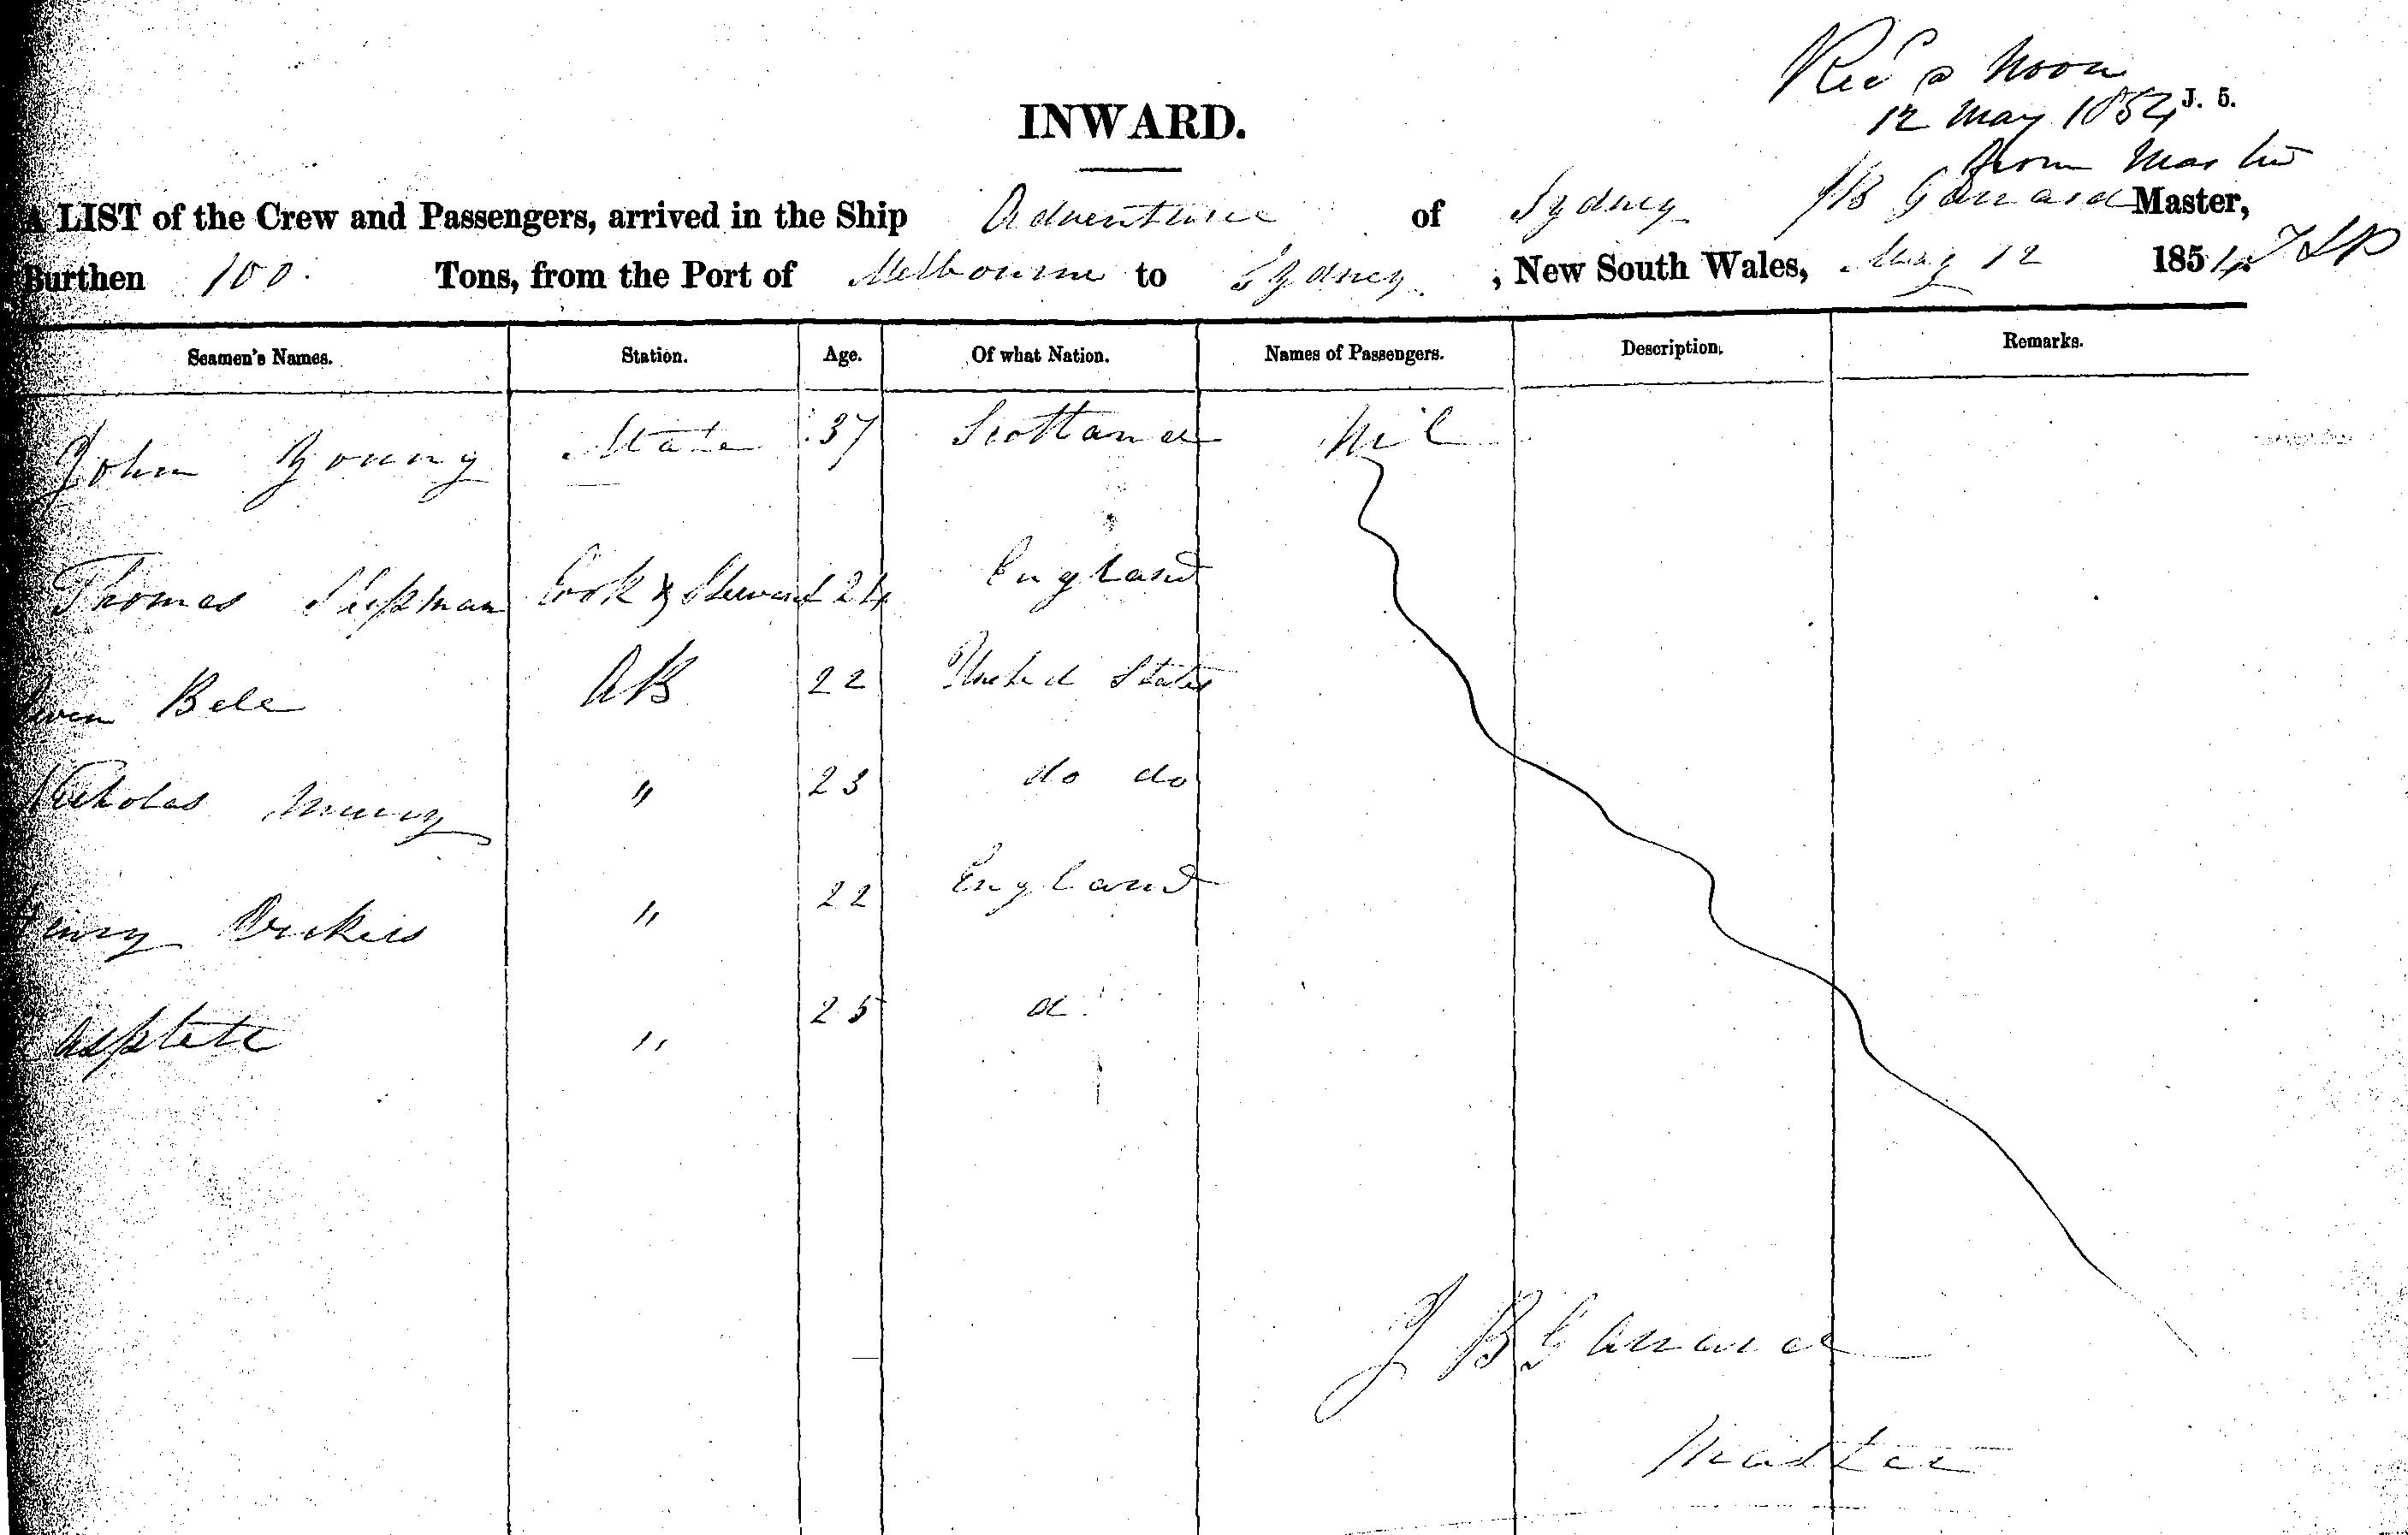 Rec'd @ Noon
12 May 1854 J. 5.
from Master
INWARD.
A LIST of the Crew and Passengers, arrived in the Ship Adventure of Sydney J B Garrard Master,
Burthen 100 Tons, from the Port of Melbourne to Sydney, New South Wales, May 12 1854
Seamen's Names. Station. Age. Of what Nation. Names of Passengers. Description. Remarks.
John Young Mate 37 Scotland Nil
Thomas Shipman Cook & Steward 24 England
Bell AB 22 United States
Nicholas " 23 do do
Henry " 22 England
" 25 d
J B Garrard
Master